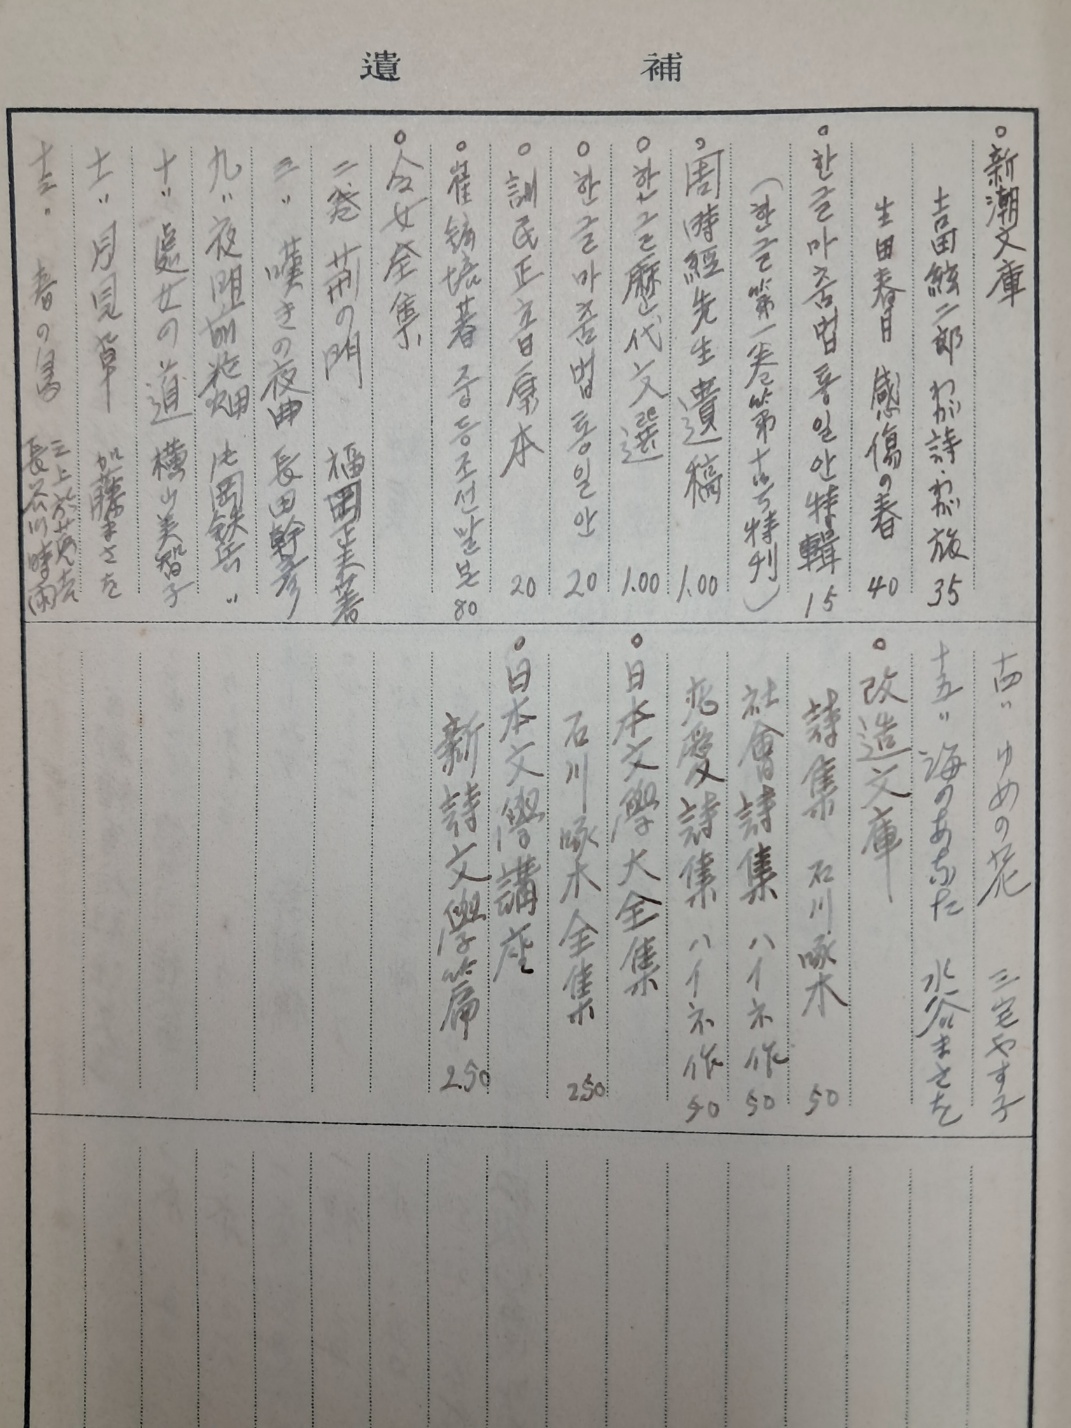 補遺
○新潮文庫
吉田絃二郎 わが詩・わが旅 35
生田春月 感傷の春 40
○한글마춤법통일안特輯 15
(한글第一卷第十号特刊)
○周時經先生遺稿 1.00
○한글歷代文選 1.00
○한글마춤법통일안 20
○訓民正音原本 20
○崔鉉培著 중등조선말본 80
○令女全集
二巻 荊の門 福岡正夫著
三〃 嘆きの夜曲 長田幹彦
九〃 夜明前 池岡鉄兵〃
十〃 處女の道 横山美智子
十一〃 月見草 加藤まさを
十三〃 春の鳥 三上於菟吉 長谷川時雨
十四〃 ゆめの花 三宅やす子
十五〃 海のあなた 水谷まさを
○改造文庫
詩集 石川啄木 50
社會詩集 ハイネ作 50
恋愛詩集 ハイネ作 50
○日本文學大全集
石川啄木全集 250
○日本文學講座
新詩文學篇 2.50